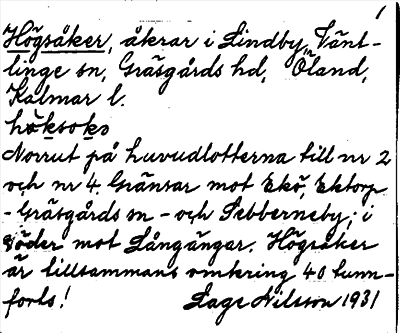 1
Högsåker, åkrar i Lindby, Vänt-
linge sn, Gräsgårds hd, Öland,
Kalmar l.
höksoko
Norrut på huvudlotterna till nr 2
och nr 4. Gränsar mot Ekö, Ektorp
- Gräsgårds sn - och Sebberneby; i
söder mot Långängar. Högsåker
är tillsammans omkring 40 tunn-
forls!
Lage Nilsson 1931